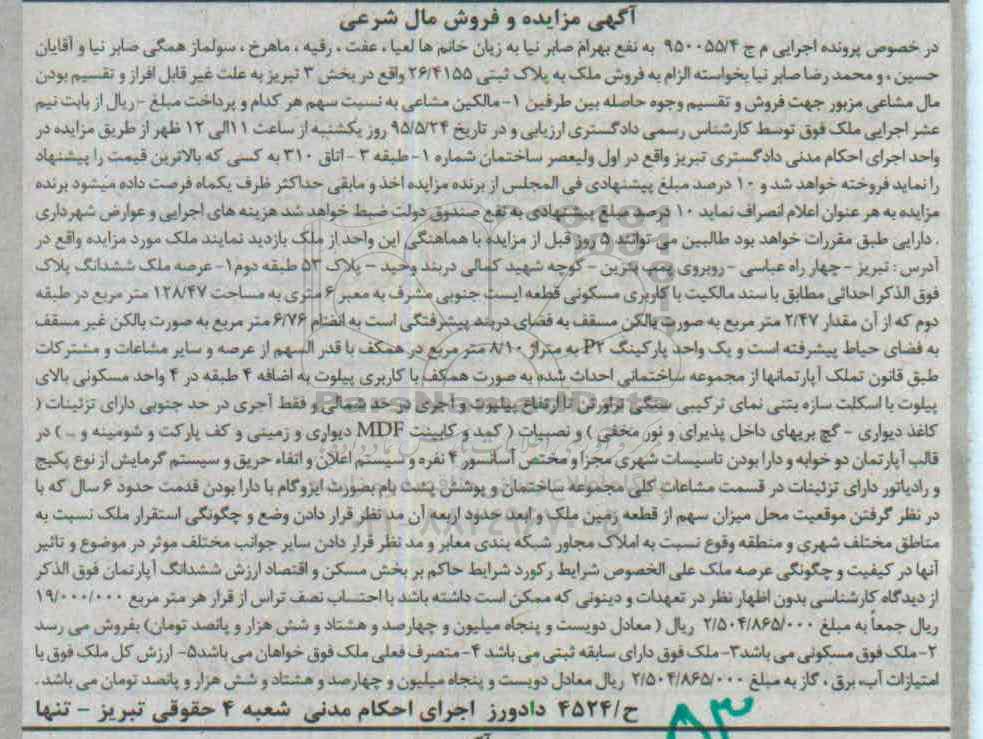 آگهی مزایده و فروش مال شرعی
در خصوص پرونده اجرایی م ج ۹۵۰۰۵۵/۴ به نفع بهرام صابر نیا به زیان خانم ها لعیا ، عفت ، رقیه ، ماهرخ ، سولماز همگی صابر نیا و آقایان
حسین ، و محمد رضا صابر نیا بخواسته الزام به فروش ملک به پلاک ثبتی ۲۶/۴۱۵۵ واقع در بخش ۳ تبریز به علت غیر قابل افراز و تقسیم بودن
مال مشاعی مزبور جهت فروش و تقسیم وجوه حاصله بین طرفین ۱- مالکین مشاعی به نسبت سهم هر کدام و پرداخت مبلغ -ریال از بابت نیم
عشر اجرایی ملک فوق توسط کارشناس رسمی دادگستری ارزیابی و در تاریخ ۹۵/۵/۲۴ روز یکشنبه از ساعت ۱۱الی ۱۲ ظهر از طریق مزایده در
واحد اجرای احکام مدنی دادگستری تبریز واقع در اول ولیعصر ساختمان شماره ۱- طبقه ۳ - اتاق ۳۱۰ به کسی که بالاترین قیمت را پیشنهاد
را نماید فروخته خواهد شد و ۱۰ درصد مبلغ پیشنهادی فی المجلس از برنده مزایده اخذ و مابقی حداکثر ظرف یکماه فرصت داده میشود برنده
مزایده به هر عنوان اعلام انصراف نماید ۱۰ درصد مبلغ پیشنهادی به نفع صندوق دولت ضبط خواهد شد هزینه های اجرایی و عوارض شهرداری
. دارایی طبق مقررات خواهد بود طالبین می توانند ۵ روز قبل از مزایده با هماهنگی این واحد از ملک بازدید نمایند ملک مورد مزایده واقع در
آدرس : تبریز - چهار راه عباسی - روبروی پمپ بنزین - کوچه شهید کمالی دربند وحید - پلاک ۵۳ طبقه دوم۱- عرصه ملک ششدانگ پلاک
فوق الذکر احداثی مطابق با سند مالکیت با کاربری مسکونی قطعه ایست جنوبی مشرف به معبر ۶ متری به مساحت ۱۲۸/۴۷ متر مربع در طبقه
دوم که از آن مقدار ۲/۴۷ متر مربع به صورت بالکن مسقف به فضای دربند پیشرفتگی است به انضام ۶/۷۶ متر مربع به صورت بالکن غیر مسقف
به فضای حیاط پیشرفته است و یک واحد پارکینگ P۲ به متراژ ۸/۱۰ متر مربع در همکف با قدر السهم از عرصه و سایر مشاعات و مشترکات
طبق قانون تملک آپارتمانها از مجموعه ساختمانی احداث شده به صورت همکف با کاربری پیلوت به اضافه ۴ طبقه در ۴ واحد مسکونی بالای
پیلوت با اسکلت سازه بتنی نمای ترکیبی سنگی تراورتن تا ارتفاع پیلوت و آجری در حد شمالی و فقط آجری در حد جنوبی دارای تزئینات (
کاغذ دیواری - گچ بریهای داخل پذیرای و نور مخفی ) و نصبیات ( کمد و کابینت MDF دیواری و زمینی و کف پارکت و شومینه و ... ) در
قالب آپارتمان دو خوابه و دارا بودن تاسیسات شهری مجزا و مختص آسانسور ۴ نفره و سیستم اعلان و اتفاء حریق و سیستم گرمایش از نوع پکیج
و رادیاتور دارای تزئینات در قسمت مشاعات کلی مجموعه ساختمان و پوشش پشت بام بصورت ایزوگام با دارا بودن قدمت حدود ۶ سال که با
در نظر گرفتن موقعیت محل میزان سهم از قطعه زمین ملک و ابعد حدود اربعه آن مد نظر قرار دادن وضع و چگونگی استقرار ملک نسبت به
مناطق مختلف شهری و منطقه وقوع نسبت به املاک مجاور شبکه بندی معابر و مد نظر قرار دادن سایر جوانب مختلف موثر در موضوع و تاثیر
آنها در کیفیت و چگونگی عرصه ملک علی الخصوص شرایط رکورد شرایط حاکم بر بخش مسکن و اقتصاد ارزش ششدانگ آپارتمان فوق الذکر
از دیدگاه کارشناسی بدون اظهار نظر در تعهدات و دیتونی که ممکن است داشته باشد با احتساب نصف تراس از قرار هر متر مربع ۱۹/۰۰۰/۰۰۰
ریال جمعاً به مبلغ ۲/۵۰۴/۸۶۵/۰۰۰ ریال ( معادل دویست و پنجاه میلیون و چهارصد و هشتاد و شش هزار و پانصد تومان) بفروش می رسد
۲- ملک فوق مسکونی می باشد۳- ملک فوق دارای سابقه ثبتی می باشد ۴- متصرف فعلی ملک فوق خواهان می باشد۵- ارزش کل ملک فوق با
امتیازات آب، برق ، گاز به مبلغ ۲/۵۰۴/۸۶۵/۰۰۰ ریال معادل دویست و پنجاه میلیون و چهارصد و هشتاد و شش هزار و پانصد تومان می باشد .
ح/۴۵۲۴ دادورز اجرای احکام مدنی شعبه ۴ حقوقی تبریز - تنها
۸۳